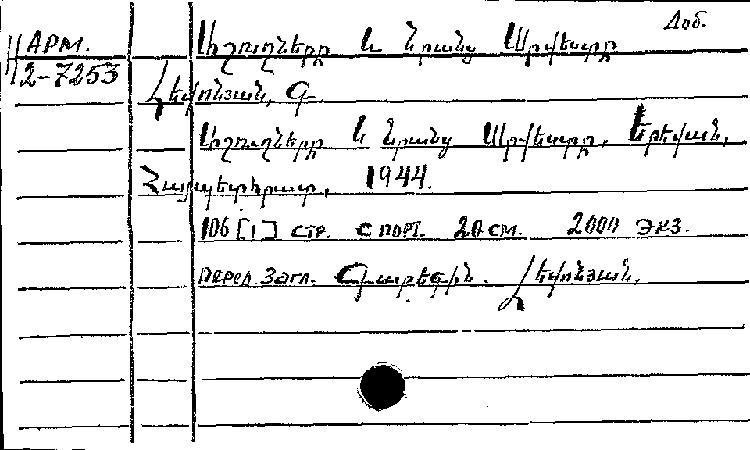 Доб.
АРМ.
2-7253
Աշուղները և նրանց Արվեստը
Լևոնյան, Գ.
Աշուղները և նրանց Արվեստը. Երևան,
Հայպետհրատ, 1944.
106 [1] стр. с порт. 20 см. 2000 экз.
Перед загл. Գարեգին Լևոնյան.